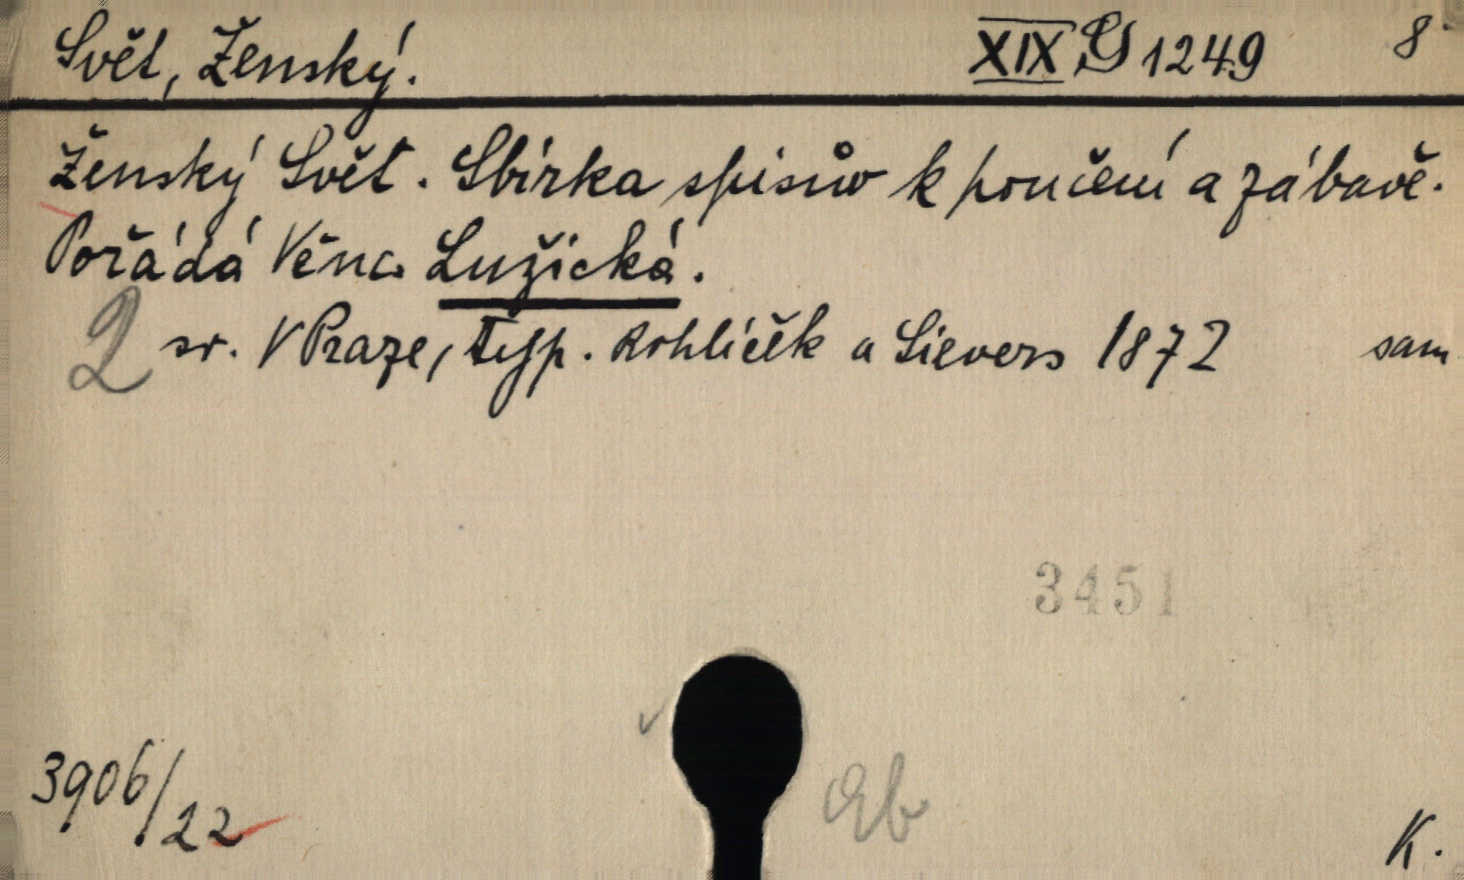 Svět, Ženský. XIX G 1249 8°
Ženský Svět. Sbírka spisův k poučení a zábavě.
Pořádá Věnc. Lužická.
2 sv. V Praze, typ. Rohlíček a Sievers 1872 sam
3451
3906/22
K.